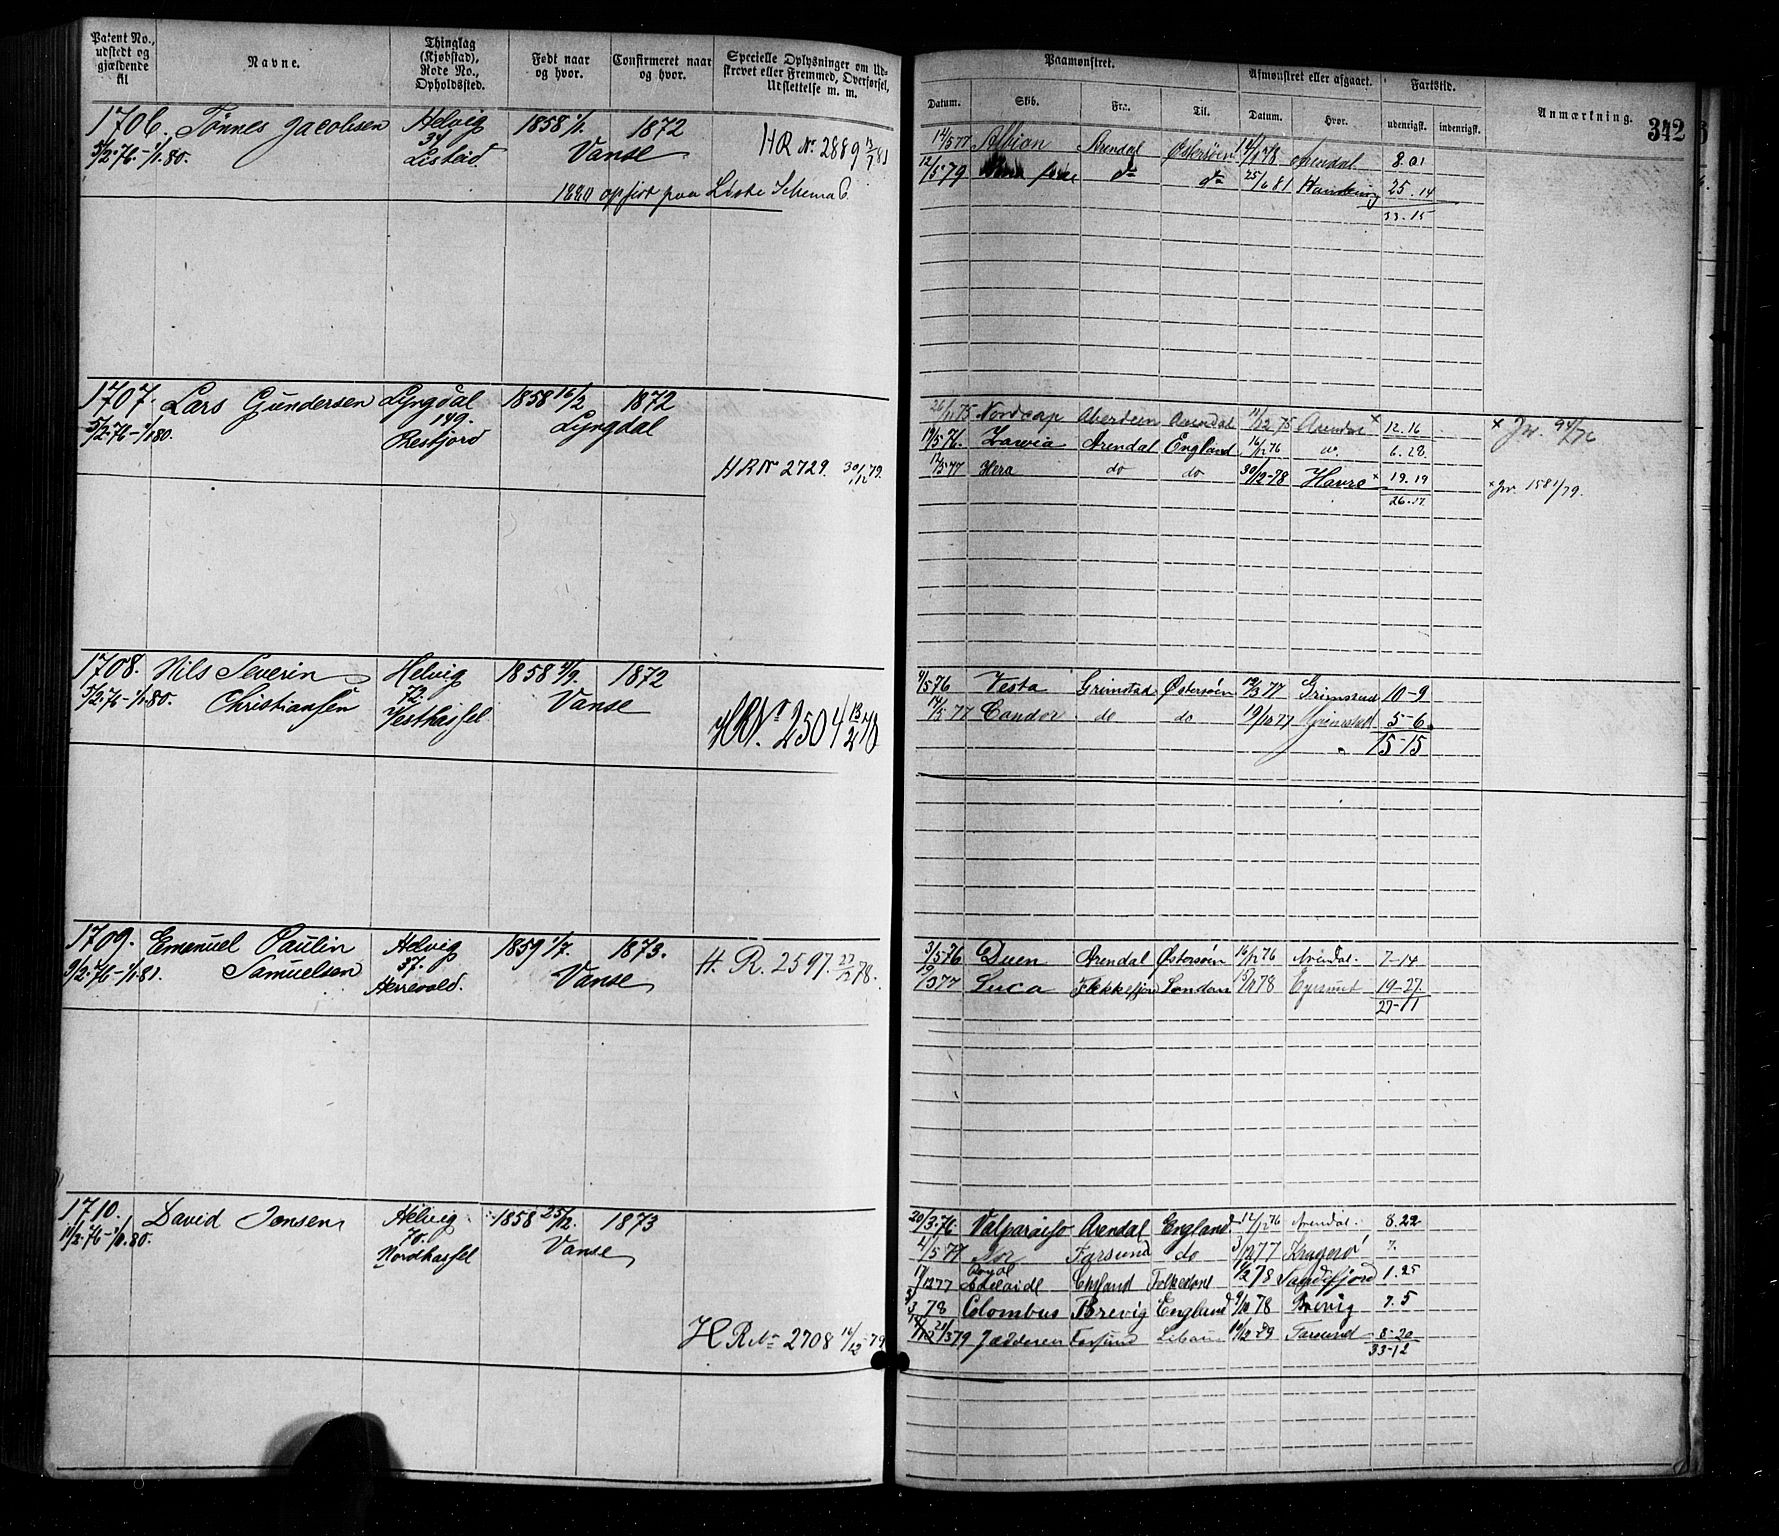 Patent No., udstedt og gjældende til
Navne.
Thinglag (Kjøbstad), Rode No., Opholdssted.
Født naar og hvor.
Confirmeret naar og hvor.
Specielle Oplysninger om Udskrevet eller Fremmed, Overførsel, Udslettelse m. m.
Paamønstret.
Afmønstret eller afgaaet.
Fartstid.
Anmærkning.
342
Datum. Skib. Fra. Til. Datum. Hvor. udenrigsk. indenrigsk.
1706. Tønnes Jacobsen Helvig 1858 1/1. 1872
5/2.76.-1/1.80. Vanse
HR No 2889
1880 opført paa Liste Schema
14/5 77 Albion Arendal Østersøen Arendal 8.01
12/5 79 do do 25/6 81 25.14
33.15
1707. Lars Gundersen Lyngdal 1858 16/2 1872
5/2.76-1/1.80. 149. Lyngdal
Resfjord
HR No 2729. 30/12 79.
26/11 75 Nordcap Aberdeen Arendal 11/12 75 Arendal x 12.16
x Jr. 94/76
17/5 76. Arendal England 16/12 76 6.28.
12/5 77 Hera do do 30/12-78 Havre x 19.19
26.17
x Jr. 1581/79.
1708. Nils Severin Helvig 1858 4/9. 1872
5/2.76-1/1.80. Christiansen 72 Vanse
Vesthassel
HR No. 2504 13/2 78
4/5 76 Vesta Grimstad Østersøen 19/3 77 Grimstad 10-9
14/5 77 Candor do do 19/10 77 Grimstad 5-6
15-15
1709. Emanuel Paulin Helvig 1859 1/7. 1873.
5/2.76-1/1.81. Samuelsen 37. Vanse
Herrevold.
H. R. 2597. 27/12 78.
3/5 76 Duen Arendal Østersøen 16/12 76 Arendal. 7-14
19/3 77 Luca Flekkefjord London Egersund 19-27.
27-11
1710. David Jansen Helvig 1858 25/12. 1873
11/2.76-1/1.80. 70. Vanse
Nordhassel
H R No 2708 16/12-79
20/3-76 Valparaiso Arendal England 12/12 76 Arendal. 8.22
2/5 77 Nor Farsund do 3/12 77 Kragerø 7.
Royal
Adelaide England Sandefjord 1.25
Colombus Brevig England 9/10 78 Brevig 7.5
Jædderen Farsund Libau Farsund 8-20
33-12